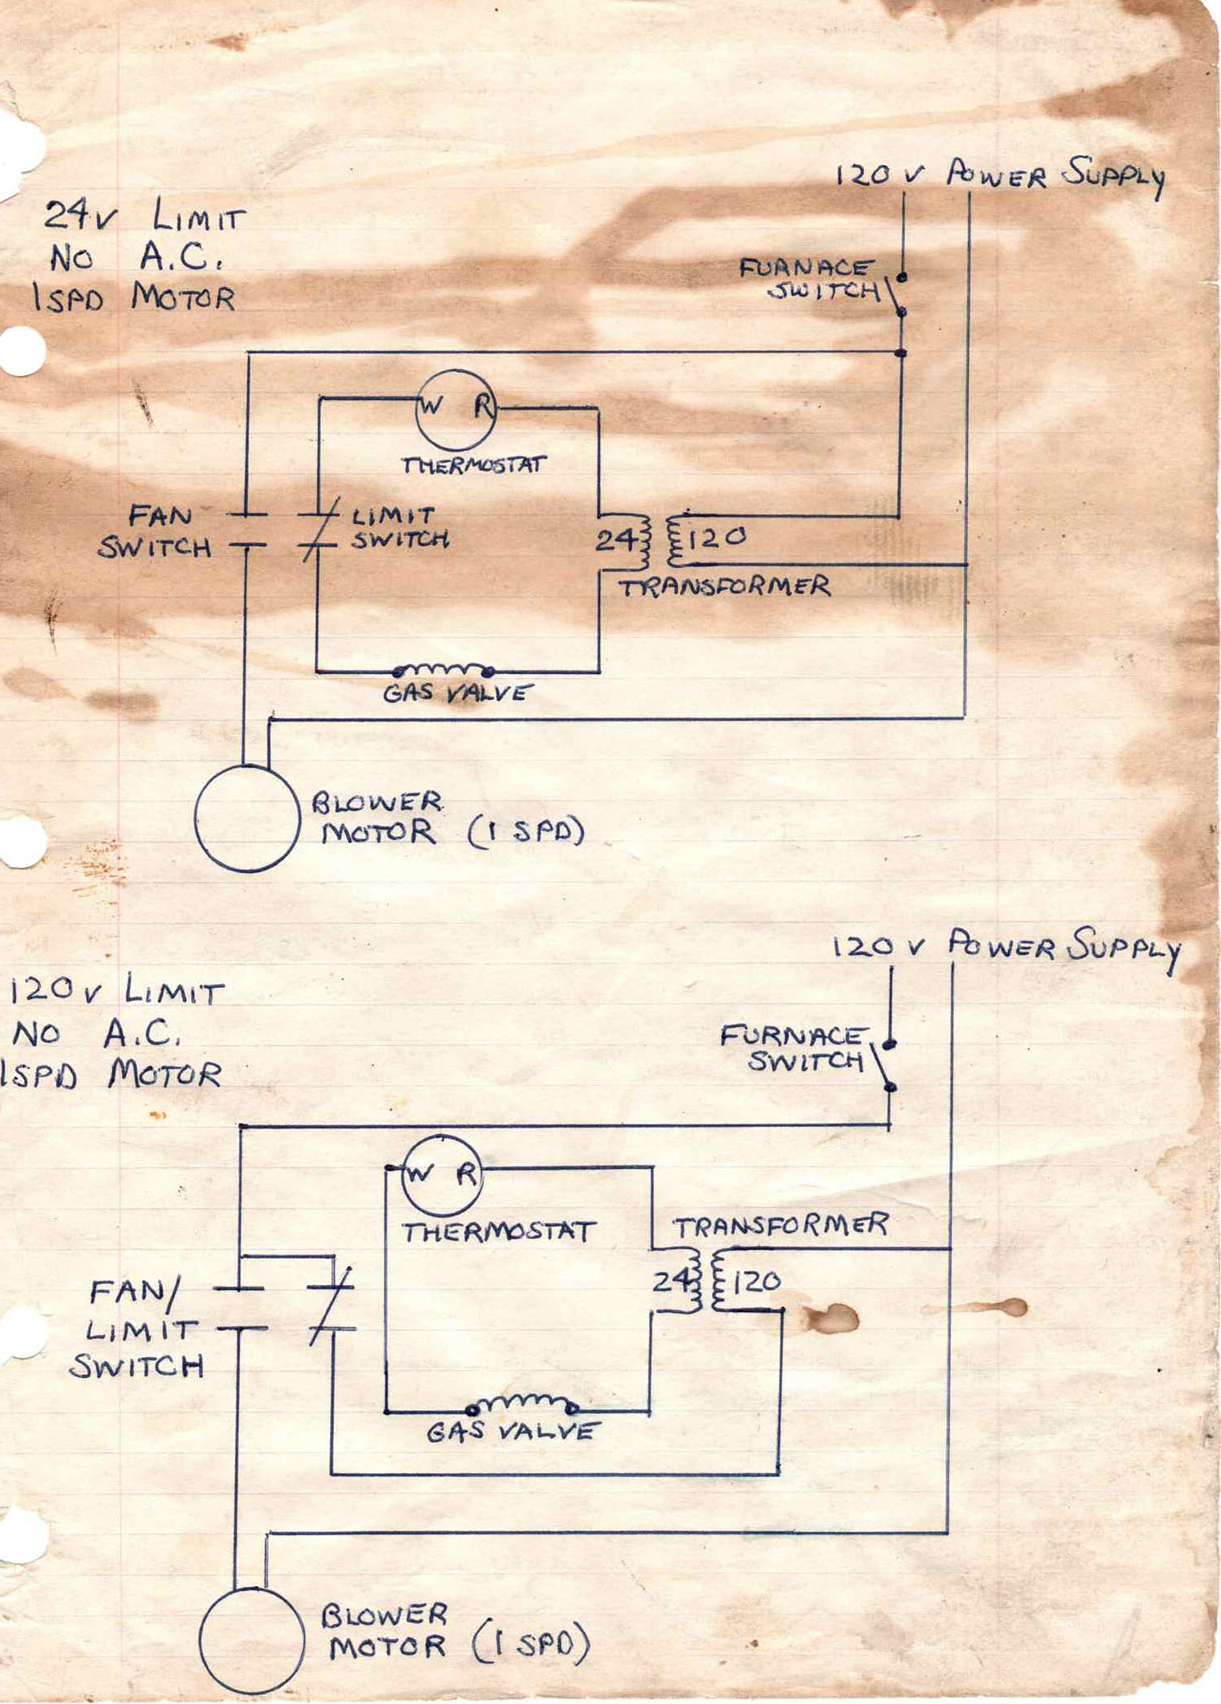 120 V POWER SUPPLY
24V LIMIT
NO A.C.
1SPD MOTOR
FURNACE
SWITCH
W R
THERMOSTAT
FAN
SWITCH
LIMIT
SWITCH
24 120
TRANSFORMER
GAS VALVE
BLOWER
MOTOR (1 SPD)
120 V POWER SUPPLY
120V LIMIT
NO A.C.
1SPD MOTOR
FURNACE
SWITCH
W R
THERMOSTAT
TRANSFORMER
24 120
FAN/
LIMIT
SWITCH
GAS VALVE
BLOWER
MOTOR (1 SPD)